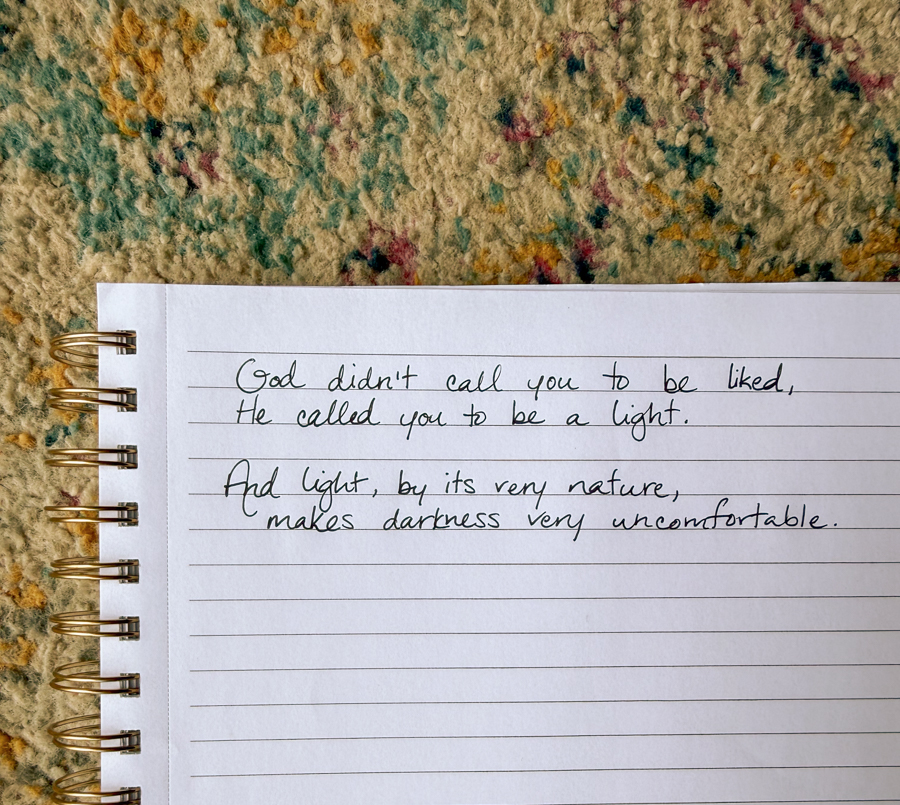 God didn't call you to be liked,
He called you to be a light.
And light, by its very nature,
makes darkness very uncomfortable.